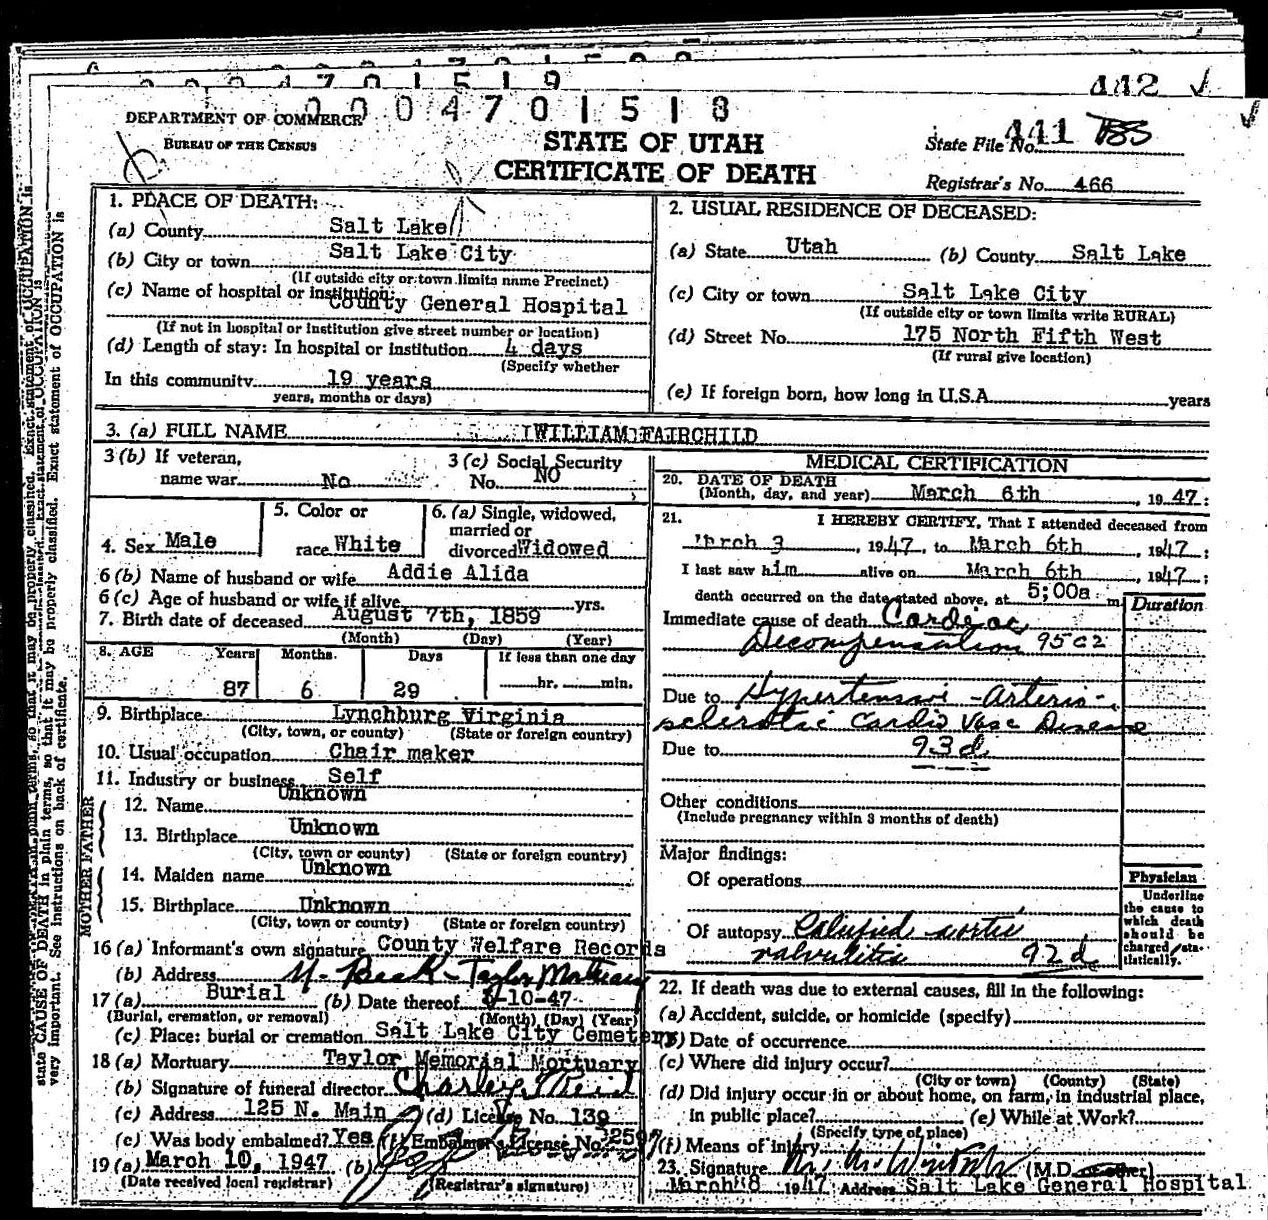 442 ✓
0004701518
DEPARTMENT OF COMMERCE
BUREAU OF THE CENSUS
STATE OF UTAH
CERTIFICATE OF DEATH
State File No. 441
Registrar's No. 466
1. PLACE OF DEATH:
(a) County Salt Lake
(b) City or town Salt Lake City
(If outside city or town limits name Precinct)
(c) Name of hospital or institution:
County General Hospital
(If not in hospital or institution give street number or location)
(d) Length of stay: In hospital or institution 4 days
(Specify whether
In this community 19 years
years, months or days)
2. USUAL RESIDENCE OF DECEASED:
(a) State Utah (b) County Salt Lake
(c) City or town Salt Lake City
(If outside city or town limits write RURAL)
(d) Street No. 175 North Fifth West
(If rural give location)
(e) If foreign born, how long in U.S.A. years
3. (a) FULL NAME WILLIAM FAIRCHILD
3 (b) If veteran,
name war. No
3 (c) Social Security
No. NO
4. Sex Male
5. Color or
race White
6. (a) Single, widowed,
married or
divorced Widowed
6 (b) Name of husband or wife Addie Alida
6 (c) Age of husband or wife if alive yrs.
7. Birth date of deceased August 7th, 1859
(Month) (Day) (Year)
8. AGE Years Months Days If less than one day
87 6 29 hr. min.
9. Birthplace Lynchburg Virginia
(City, town, or county) (State or foreign country)
10. Usual occupation Chair maker
11. Industry or business Self
FATHER
12. Name Unknown
13. Birthplace Unknown
(City, town or county) (State or foreign country)
MOTHER
14. Maiden name Unknown
15. Birthplace Unknown
(City, town or county) (State or foreign country)
16 (a) Informant's own signature County Welfare Records
(b) Address Beck - Taylor Mortuary
17 (a) Burial (b) Date thereof 3-10-47
(Burial, cremation, or removal) (Month) (Day) (Year)
(c) Place: burial or cremation Salt Lake City Cemetery
18 (a) Mortuary Taylor Memorial Mortuary
(b) Signature of funeral director Charley Reid
(c) Address 125 N. Main (d) License No. 139
(e) Was body embalmed? Yes (f) Embalmer's License No. 2597
19 (a) March 10, 1947 (b)
(Date received local registrar) (Registrar's signature)
MEDICAL CERTIFICATION
20. DATE OF DEATH
(Month, day, and year) March 6th, 1947:
21. I HEREBY CERTIFY, That I attended deceased from
March 3, 1947, to March 6th, 1947;
I last saw him alive on March 6th, 1947;
death occurred on the date stated above, at 5;00a m
Duration
Immediate cause of death Cardiac
Decompensation 95c2
Due to Hypertensive - Arterio-
sclerotic Cardio Vasc Disease
Due to 93d
Other conditions
(Include pregnancy within 3 months of death)
Major findings:
Of operations
Of autopsy Calcified aortic
valvulitis 92d
Physician
Underline
the cause to
which death
should be
charged statistically.
22. If death was due to external causes, fill in the following:
(a) Accident, suicide, or homicide (specify)
(b) Date of occurrence
(c) Where did injury occur?
(City or town) (County) (State)
(d) Did injury occur in or about home, on farm, in industrial place,
in public place? (e) While at Work?
(Specify type of place)
(f) Means of injury
23. Signature (M.D. or other)
March 8 1947 Address Salt Lake General Hospital
state CAUSE OF DEATH in plain terms, so that it may be properly classified. Exact statement of OCCUPATION is
very important. See instructions on back of certificate.